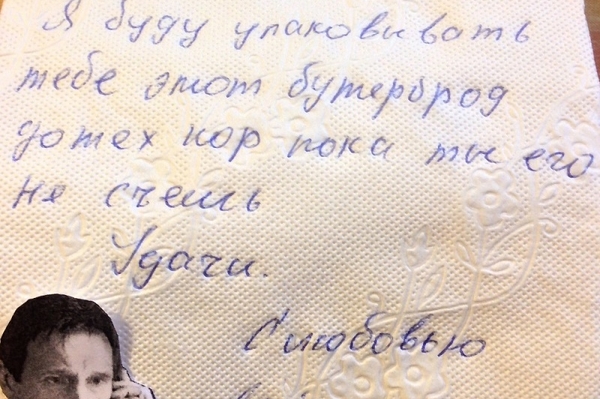 Я буду упаковывать
тебе этот бутерброд
до тех пор пока ты его
не съешь
Удачи.
С любовью